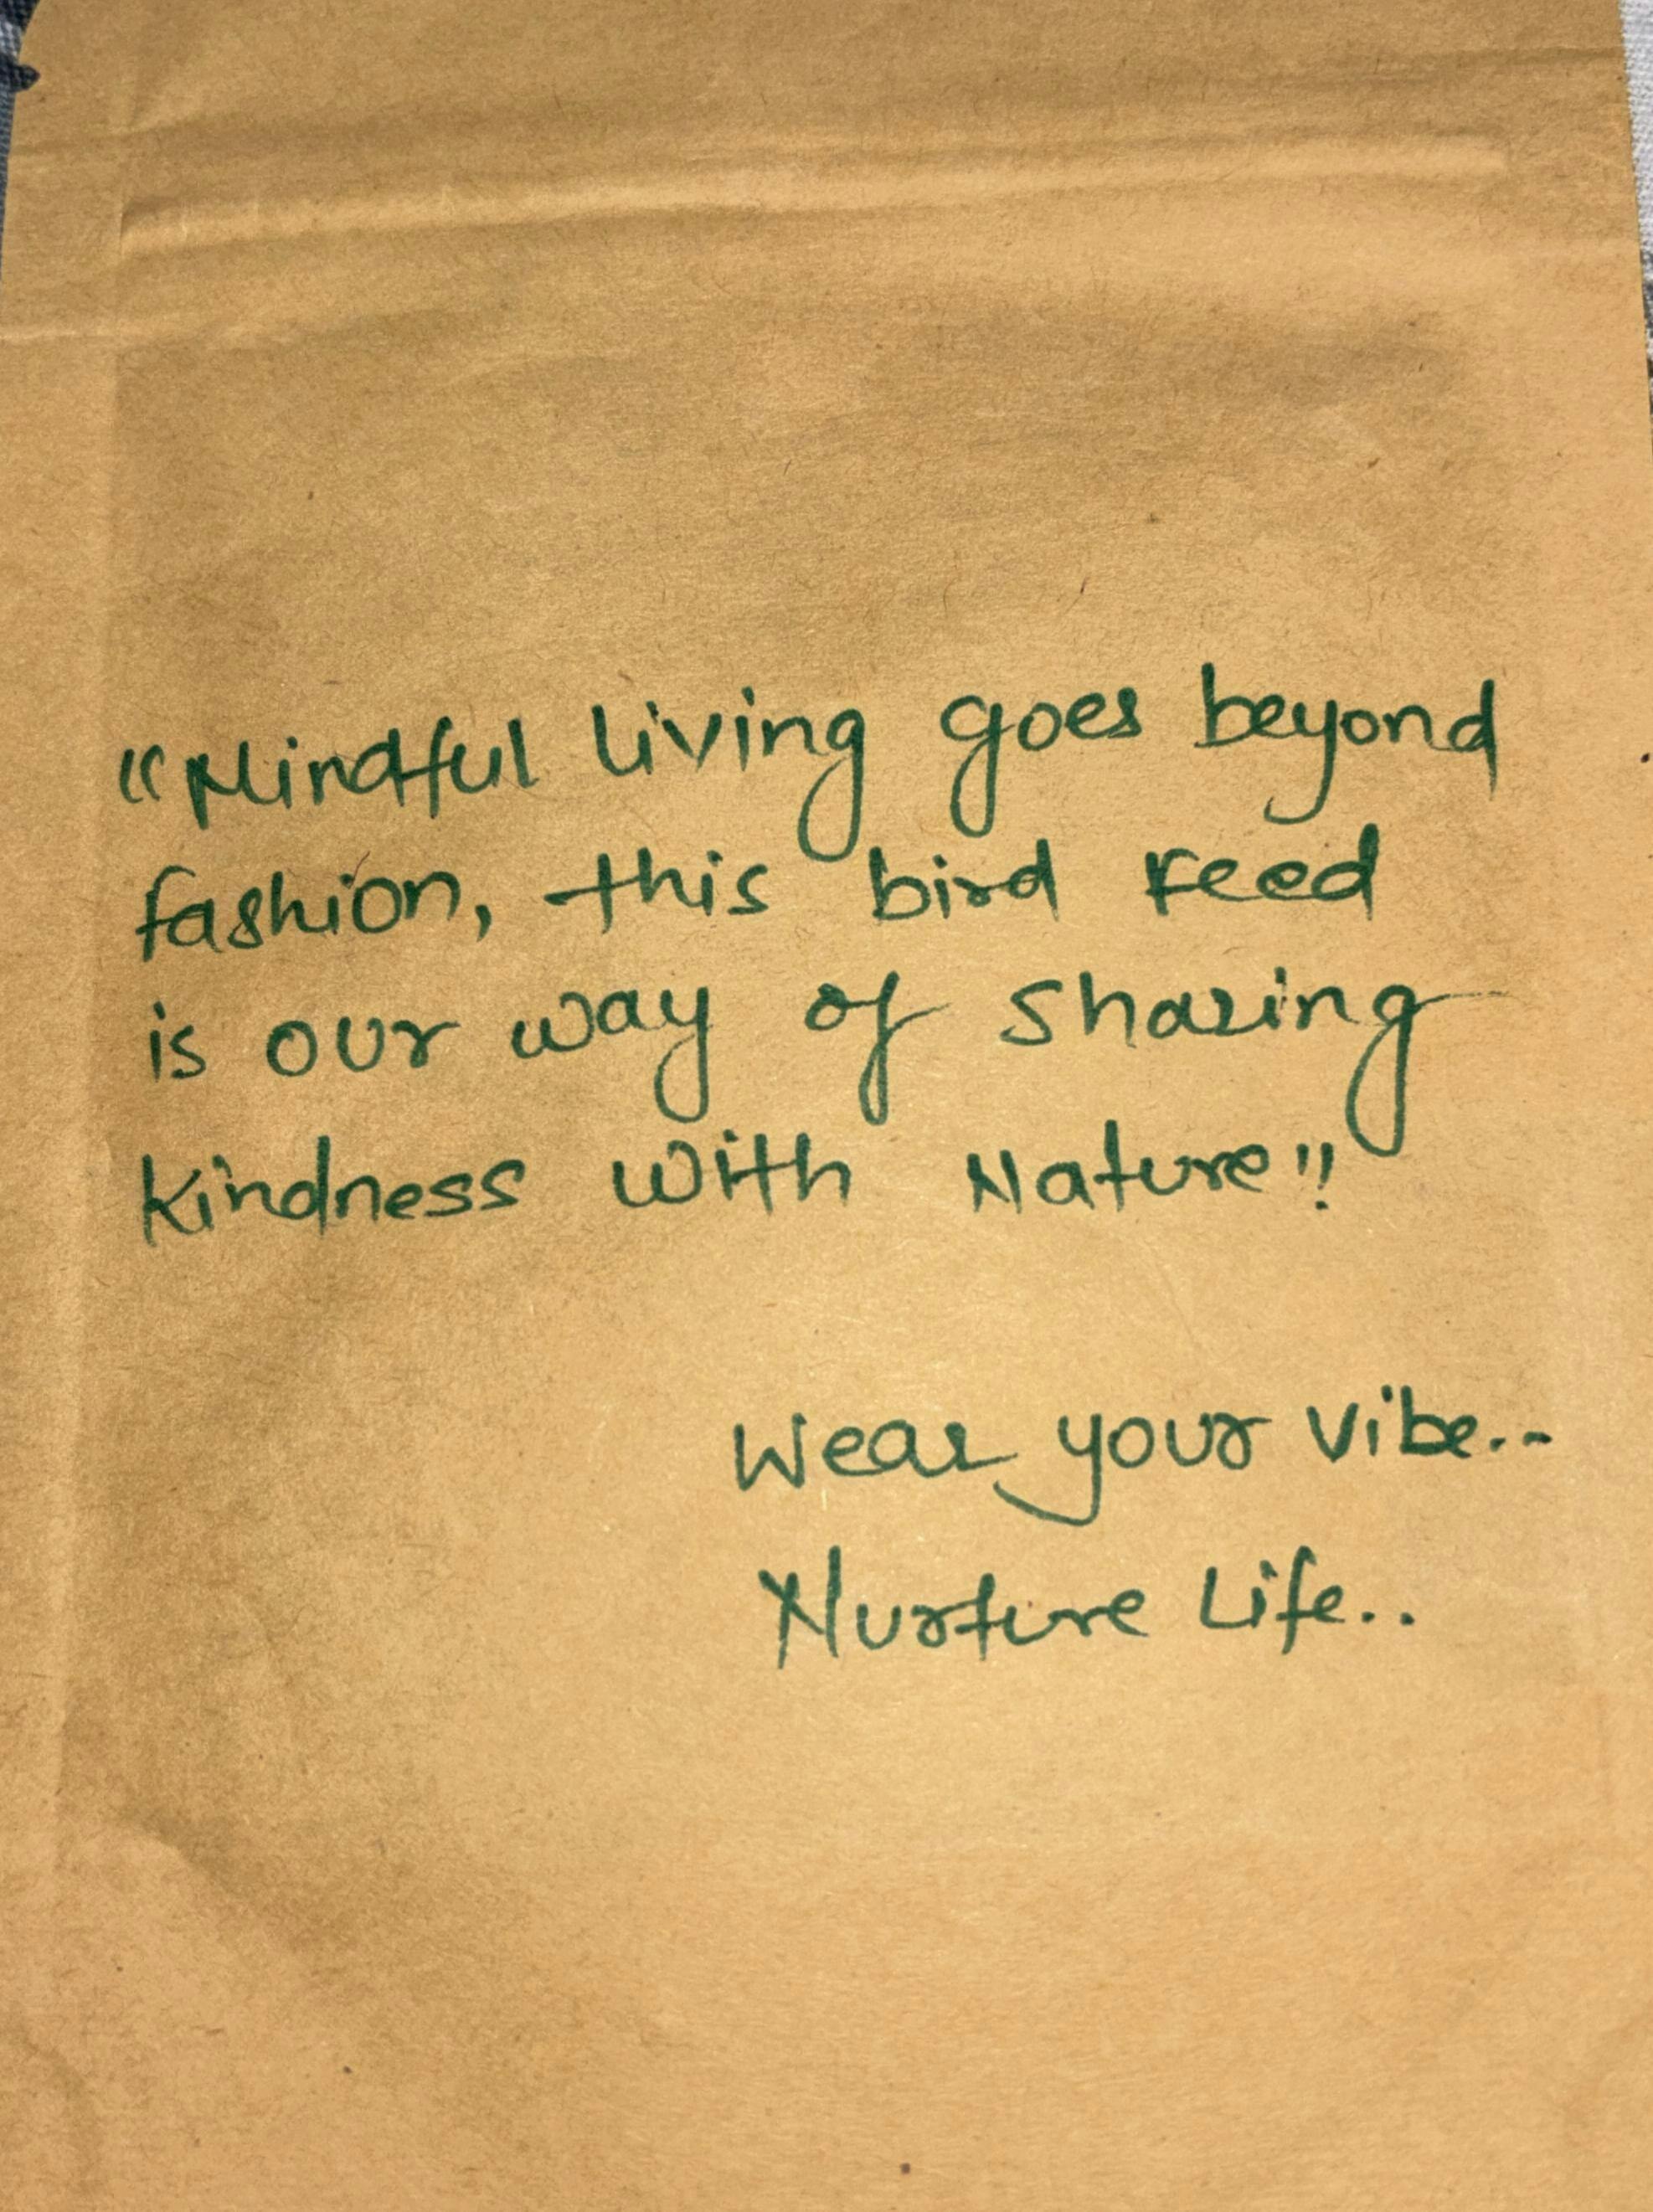 "Mindful living goes beyond
fashion, this bird feed
is our way of sharing
kindness with Nature!!
Wear your vibe..
Nurture Life..